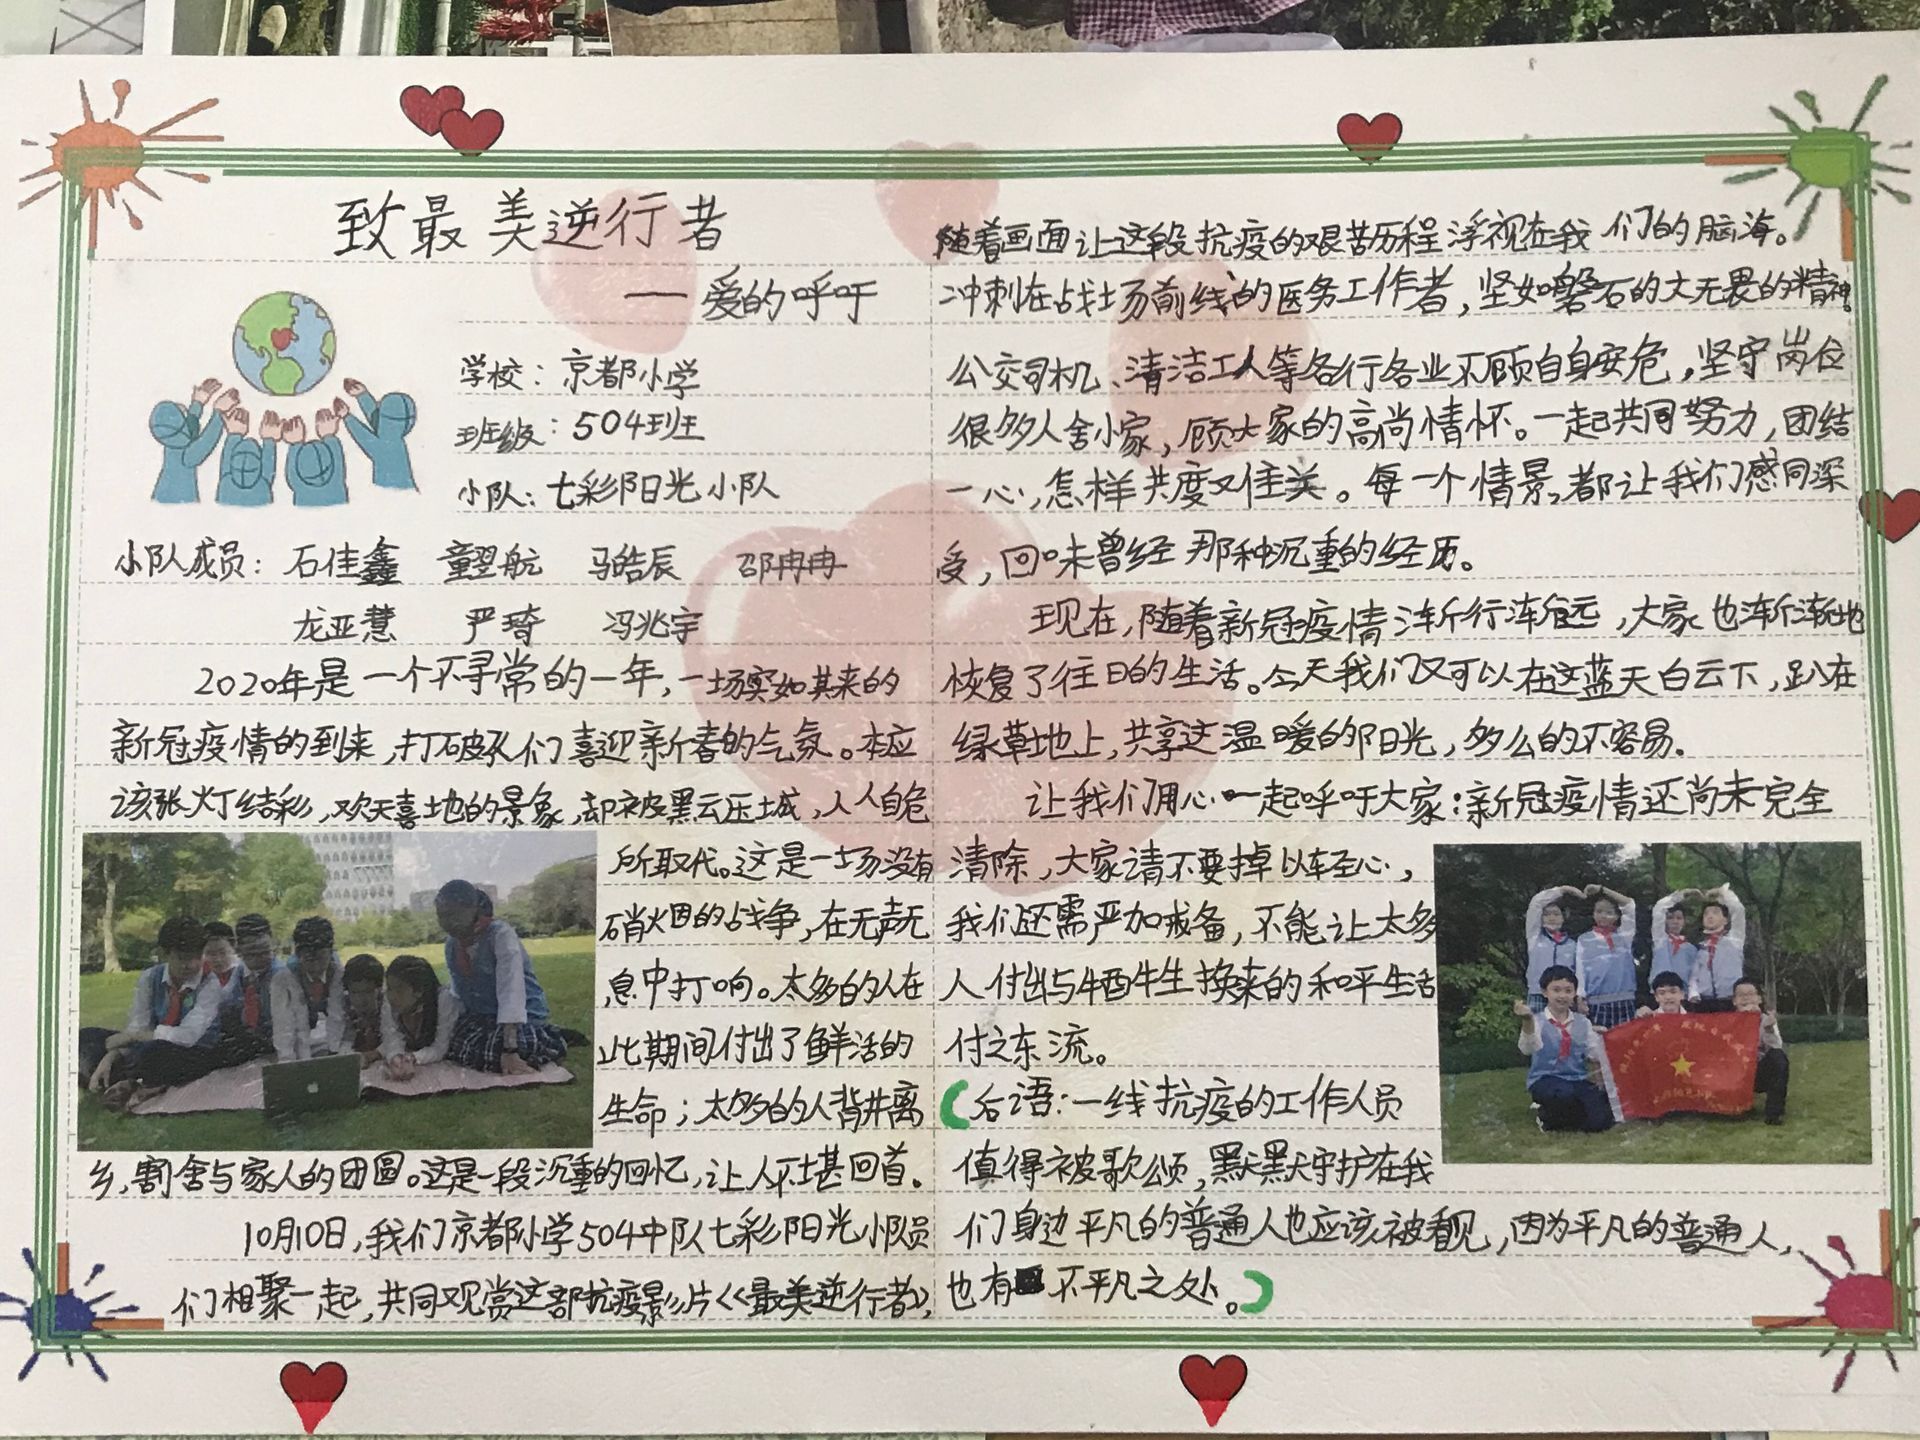 致最美逆行者
——爱的呼吁
学校：京都小学
班级：504班
小队：七彩阳光小队
小队成员：石佳鑫 童翌航 马皓辰 邵冉冉
龙亚慧 严琦 冯兆宇
2020年是一个不寻常的一年，一场突如其来的
新冠疫情的到来，打破了人们喜迎新春的气氛。本应
该张灯结彩，欢天喜地的景象，却被黑云压城，人人自危
所取代。这是一场没有
硝烟的战争，在无声无
息中打响。太多的人在
此期间付出了鲜活的
生命；太多的人背井离
乡，割舍与家人的团圆。这是一段沉重的回忆，让人不堪回首。
10月10日，我们京都小学504中队七彩阳光小队员
们相聚一起，共同观赏这部抗疫影片《最美逆行者》，
随着画面让这段抗疫的艰苦历程浮视在我们的脑海。
冲刺在战场前线的医务工作者，坚如磐石的大无畏的精神。
公交司机、清洁工人等各行各业不顾自身安危，坚守岗位
很多人舍小家，顾大家的高尚情怀。一起共同努力，团结
一心，怎样共度难关。每一个情景，都让我们感同深
受，回味曾经那种沉重的经历。
现在，随着新冠疫情渐行渐远，大家也渐渐地
恢复了往日的生活。今天我们又可以在这蓝天白云下，趴在
绿草地上，共享这温暖的阳光，多么的不容易。
让我们用心一起呼吁大家：新冠疫情还尚未完全
清除，大家请不要掉以轻心，
我们还需严加戒备，不能让太多
人付出与牺牲换来的和平生活
付之东流。
（后语：一线抗疫的工作人员
值得被歌颂，默默守护在我
们身边平凡的普通人也应该被看见，因为平凡的普通人，
也有不平凡之处。）